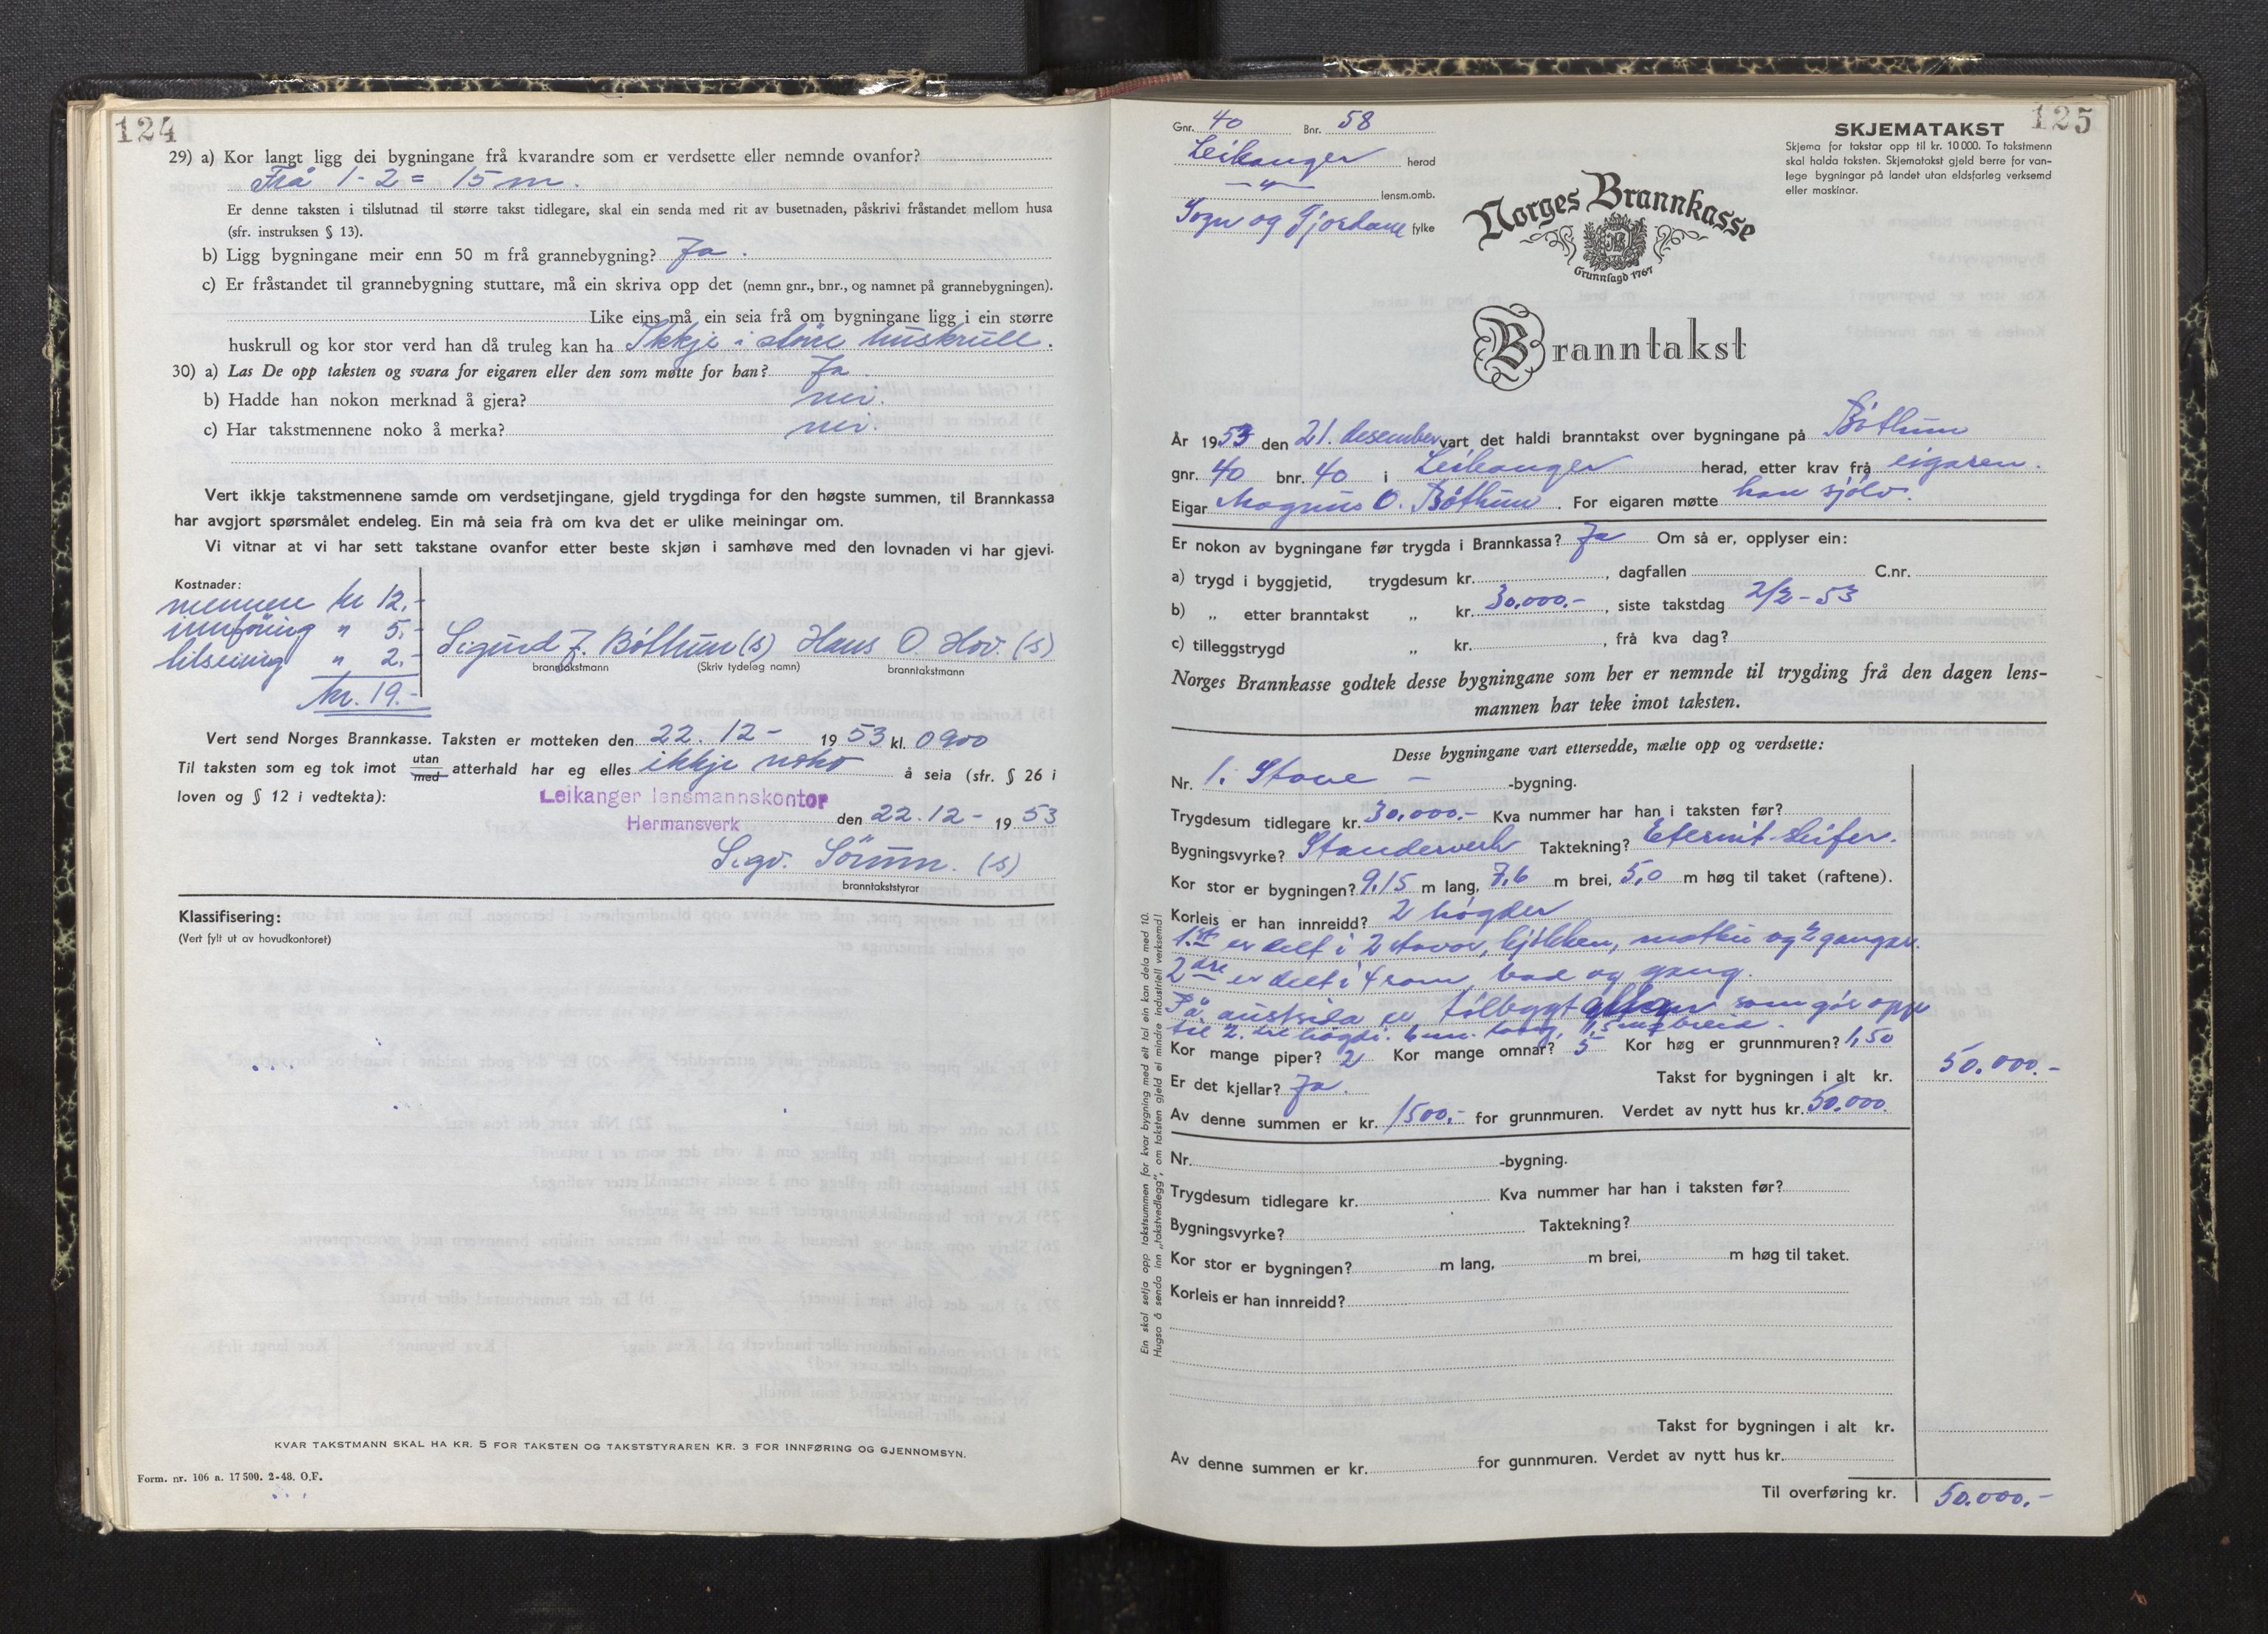 124
29) a) Kor langt ligg dei bygningane frå kvarandre som er verdsette eller nemnde ovanfor?
Frå 1-2 = 15 m.
Er denne taksten i tilslutnad til større takst tidlegare, skal ein senda med rit av busetnaden, påskrivi fråstandet mellom husa
(sfr. instruksen § 13).
b) Ligg bygningane meir enn 50 m frå grannebygning? Ja.
c) Er fråstandet til grannebygning stuttare, må ein skriva opp det (nemn gnr., bnr., og namnet på grannebygningen).
Like eins må ein seia frå om bygningane ligg i ein større
huskrull og kor stor verd han då truleg kan ha Ikkje i större huskrull.
30) a) Las De opp taksten og svara for eigaren eller den som møtte for han? Ja.
b) Hadde han nokon merknad å gjera? nei.
c) Har takstmennene noko å merka? nei.
Vert ikkje takstmennene samde om verdsetjingane, gjeld trygdinga for den høgste summen, til Brannkassa
har avgjort spørsmålet endeleg. Ein må seia frå om kva det er ulike meiningar om.
Vi vitnar at vi har sett takstane ovanfor etter beste skjøn i samhøve med den lovnaden vi har gjevi.
Kostnader:
mennene kr 12.-
innföring " 5.-
tilseing " 2.-
kr. 19.-
Sigurd J. Bóthun (s) Hans O. Hov. (s)
branntakstmann (Skriv tydeleg namn) branntakstmann
Vert send Norges Brannkasse. Taksten er motteken den 22. 12 - 1953 kl. 0900
Til taksten som eg tok imot utan/med atterhald har eg elles ikkje noko å seia (sfr. § 26 i
loven og § 12 i vedtekta):
Leikanger lensmannskontor
Hermansverk den 22.12 - 1953
Sigv. Sörum. (s)
branntakststyrar
Klassifisering:
(Vert fylt ut av hovudkontoret)
KVAR TAKSTMANN SKAL HA KR. 5 FOR TAKSTEN OG TAKSTSTYRAREN KR. 3 FOR INNFØRING OG GJENNOMSYN.
Form. nr. 106 a. 17 500. 2-48. O.F.
125
Gnr. 40 Bnr. 58
Leikanger herad
— " — lensm.omb.
Sogn og Fjordane fylke
SKJEMATAKST
Skjema for takstar opp til kr. 10 000. To takstmenn
skal halda taksten. Skjematakst gjeld berre for van-
lege bygningar på landet utan eldsfarleg verksemd
eller maskinar.
Norges Brannkasse
Grunnlagd 1767
Branntakst
År 1953 den 21. desember vart det haldi branntakst over bygningane på Bóthun
gnr. 40 bnr. 40 i Leikanger herad, etter krav frå eigaren.
Eigar Magnus O. Bóthun. For eigaren møtte han sjølv.
Er nokon av bygningane før trygda i Brannkassa? Ja Om så er, opplyser ein:
a) trygd i byggjetid, trygdesum kr. , dagfallen C.nr.
b) „ etter branntakst „ kr. 30.000.-, siste takstdag 2/2 - 53
c) tilleggstrygd „ kr. , frå kva dag?
Norges Brannkasse godtek desse bygningane som her er nemnde til trygding frå den dagen lens-
mannen har teke imot taksten.
Desse bygningane vart ettersedde, mælte opp og verdsette:
Nr. 1. Stove - -bygning.
Trygdesum tidlegare kr. 30,000.- Kva nummer har han i taksten før?
Bygningsvyrke? Standerverk Taktekning? Eternit-Skifer.
Kor stor er bygningen? 9,15 m lang, 7,6 m brei, 5,0 m høg til taket (raftene).
Korleis er han innreidd? 2 högder
1ste er delt i 2 stover, kjökken, matbu og 2 gangar.
2dre er delt i 4 rom, bad og gang.
På austsida er tilbygt altan som går opp
til 2. dre högdi. 6 m. lang, 1,5 m breid.
Kor mange piper? 2 Kor mange omnar? 5 Kor høg er grunnmuren? 1,50
Er det kjellar? Ja. Takst for bygningen i alt kr. 50.000.-
Av denne summen er kr. 1500.- for grunnmuren. Verdet av nytt hus kr. 50.000.
Nr. -bygning.
Trygdesum tidlegare kr. Kva nummer har han i taksten før?
Bygningsvyrke? Taktekning?
Kor stor er bygningen? m lang, m brei, m høg til taket.
Korleis er han innreidd?
Takst for bygningen i alt kr.
Av denne summen er kr. for gunnmuren. Verdet av nytt hus kr.
Til overføring kr. 50.000.-
Ein skal setja opp takstsummen for kvar bygning med eit tal ein kan dela med 10.
Hugsa å senda inn „takstvedlegg", om taksten gjeld ei mindre industriell verksemd!